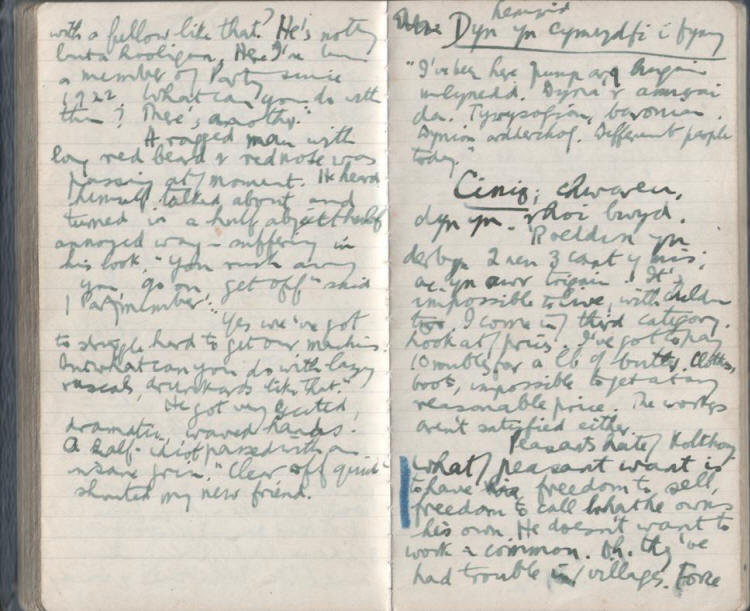 with a fellow like that? He's nothing
but a hooligan. Here I've been
a member of Party since
1922. What can you do with
them? There's another."
A ragged man with
long red beard & red nose was
passing at / moment. He heard
himself talked about and
turned in a half abject half
annoyed way – suffering in
his look. "You rush away
you, go on, get off" said
/ Party member.
"Yes we've got
to struggle hard to get our machines.
But what can you do with lazy
rascals, drunkards like that."
He got very excited,
dramatic, waved hands.
A half-idiot passed with an
insane grin. "Clear off quick"
shouted my new friend.
Dyn yn cymeryd i fyny
"I've been here pump ar hugain
mlynedd. Dyna r amser
da. Tywysogion, barwniaid.
Dynion ardderchog. Different people
today."
Ciniq; chwaer,
dyn yn rhoi bwyd.
Roeddwn yn
derbyn 2 neu 3 cant y mis;
ac yn awr trigain. It's
impossible to live, with children
too. I come in / third category.
Look at / prices. I've got to pay
10 roubles for a lb of butter. Clothes,
boots, impossible to get at any
reasonable price. The workers
aren't satisfied either.
Peasants hate / Kolkhoz
what / peasant want is
to have his freedom to sell,
freedom to call what he owns
his own. He doesn't want to
work in common. Oh, they've
had trouble in / villages. Force